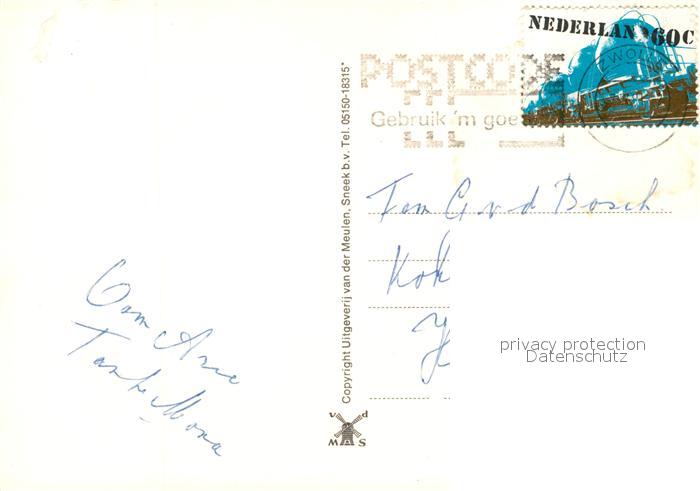 NEDERLAND 60c
POSTCODE
Gebruik 'm goed
ZWOL
Copyright Uitgeverij van der Meulen, Sneek b.v. Tel. 05150-18315*
Fam G v d Bosch
Kok
Oom Arie
Tante Mona
privacy protection
Datenschutz
v d
M S